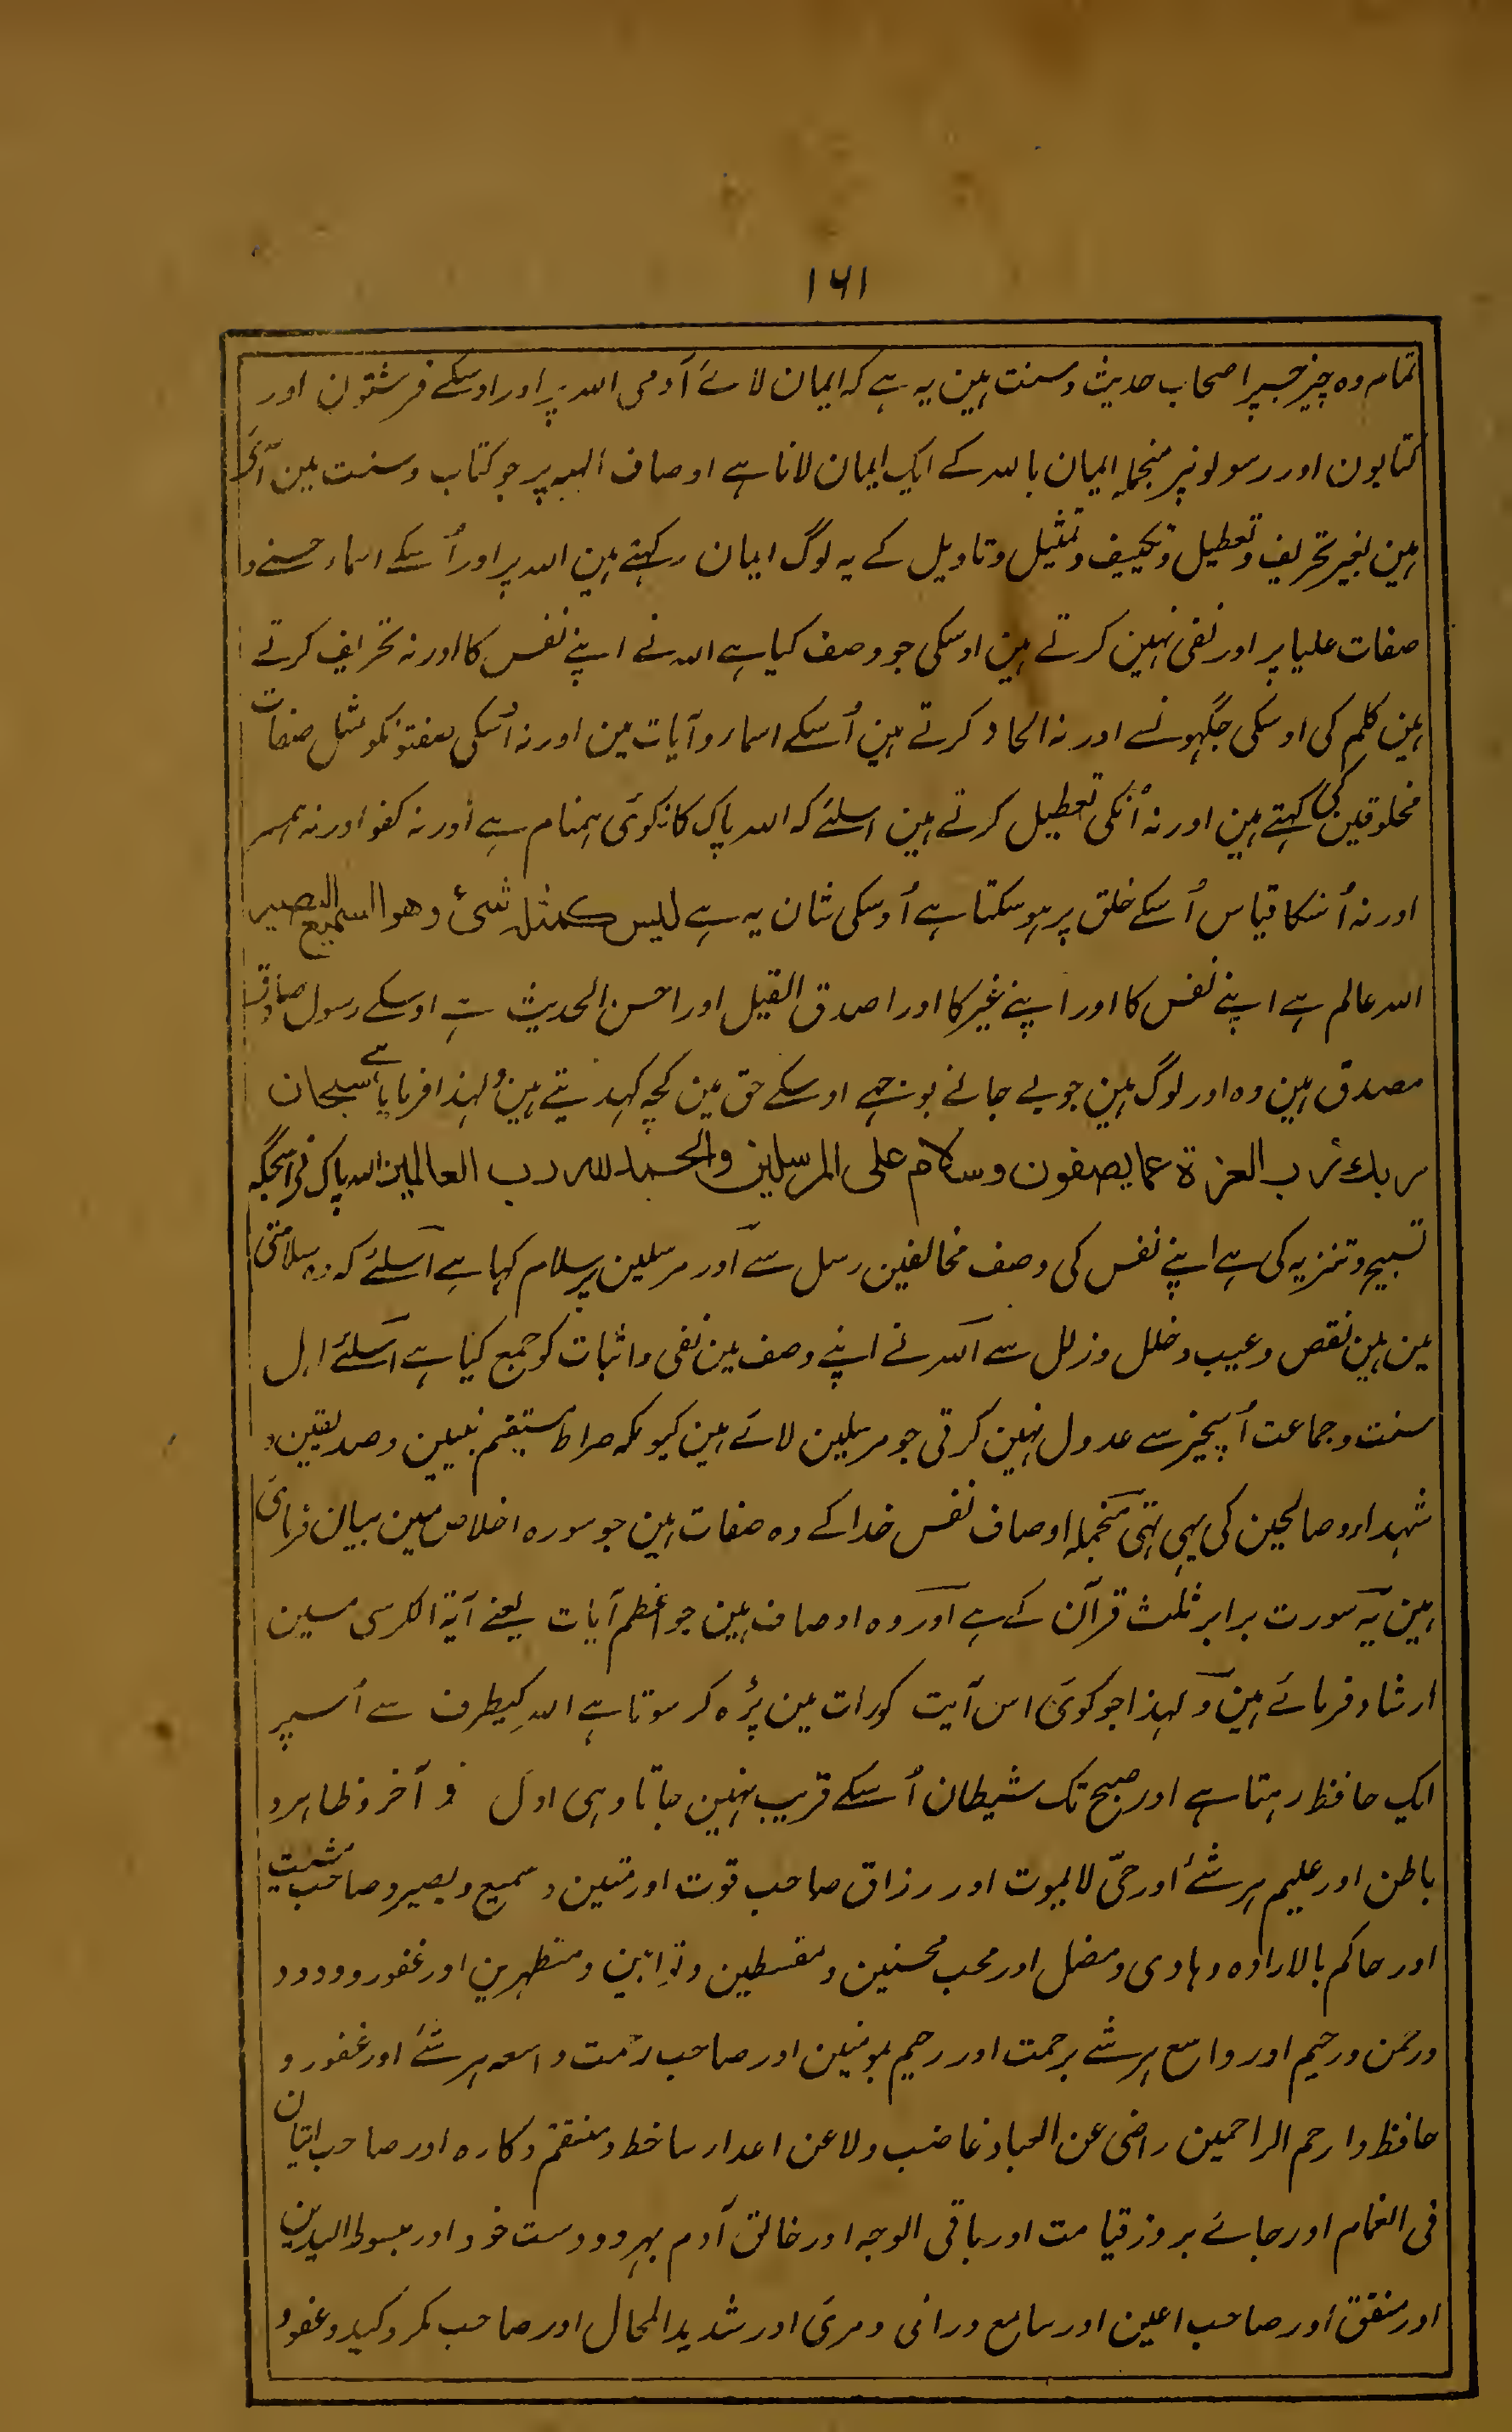 ۱۶۱
تمام وہ چیز جسپر اصحاب حدیث وسنت ہین یہ ہے کہ ایمان لائے آدمی اللہ پر اور اوسکے فرشتون اور
کتابون اور رسولونپر منجملہ ایمان باللہ کے ایک ایمان لانا ہے اوصاف الہیہ پر جو کتاب وسنت مین آئے
ہین بغیر تحریف وتعطیل وتکییف وتمثیل وتاویل کے یہ لوگ ایمان رکہتے ہین اللہ پر اور اُسکے اسماء حسنے و
صفات علیا پر اور نفی نہین کرتے ہین اوسکی جو وصف کیا ہے اللہ نے اپنے نفس کا اور نہ تحریف کرتے
ہین کلم کی اوسکی جگہونسے اور نہ الحاد کرتے ہین اُسکے اسماء وآیات مین اور نہ اُسکی صفتونکو مثل صفات
مخلوقین کی کہتے ہین اور نہ اُنکی تعطیل کرتے ہین اسلئے کہ اللہ پاک کا نکوئی ہمنام ہے اور نہ کفو اور نہ ہمسر
اور نہ اُسکا قیاس اُسکے خلق پر ہو سکتا ہے اُوسکی شان یہ ہے لیس کمثلہ شیٔ وھو السمیع البصیر
اللہ عالم ہے اپنے نفس کا اور اپنے غیر کا اور اصدق القیل اور احسن الحدیث ہے اوسکے رسول صادق
مصدق ہین وہ اور لوگ ہین جو بے جانے بوجہے اوسکے حق مین کچہ کہدیتے ہین ولہذا فرمایا ہے سبحان
ربک رب العزة عما یصفون وسلام علی المرسلین والحمد للہ رب العالمین اللہ پاک نے اسجگہ
تسبیح وتنزیہ کی ہے اپنے نفس کی وصف مخالفین رسل سے اور مرسلین پر سلام کہا ہے اسلئے کہ وہ سلامتی
مین ہین نقص وعیب وخلل وزلل سے اللہ نے اپنے وصف مین نفی واثبات کو جمع کیا ہے اسلئے اہل
سنت وجماعت اُسچیز سے عدول نہین کرتی جو مرسلین لائے ہین کیونکہ صراط مستقیم نبیین وصدیقین و
شہداء وصالحین کی یہی تہی منجملہ اوصاف نفس خدا کے وہ صفات ہین جو سورہ اخلاص مین بیان فرمائی
ہین یہ سورت برابر ثلث قرآن کے ہے اور وہ اوصاف ہین جو اعظم آیات یعنے آیة الکرسی مین
ارشاد فرمائے ہین ولہذا جو کوئی اس آیت کو رات مین پڑہ کر سوتا ہے اللہ کیطرف سے اُسپر
ایک حافظ رہتا ہے اور صبح تک شیطان اُسکے قریب نہین جاتا وہی اول و آخر وظاہر و
باطن اور علیم ہر شئے اور حیّ لایموت اور رزاق صاحب قوت اور متین و سمیع وبصیر وصاحب مشیت
اور حاکم بالارادہ وہادی ومضل اور محب محسنین ومقسطین وتوابین ومتطہرین اور غفور وودود
ورحمن ورحیم اور واسع ہر شے برحمت اور رحیم بمومنین اور صاحب رحمت واسعہ ہر شئے اور غفور و
حافظ وارحم الراحمین راضی عن العباد غاضب ولاعن اعداء ساخط ومنتقم وکارہ اور صاحب اتیان
فی الغمام اور جائے بروز قیامت اور باقی الوجہ اور خالق آدم بہر دو دست خود اور مبسوط الیدین
اور منفق اور صاحب اعین اور سامع ورائی ومری اور شدید المحال اور صاحب مکر وکید وعفو و